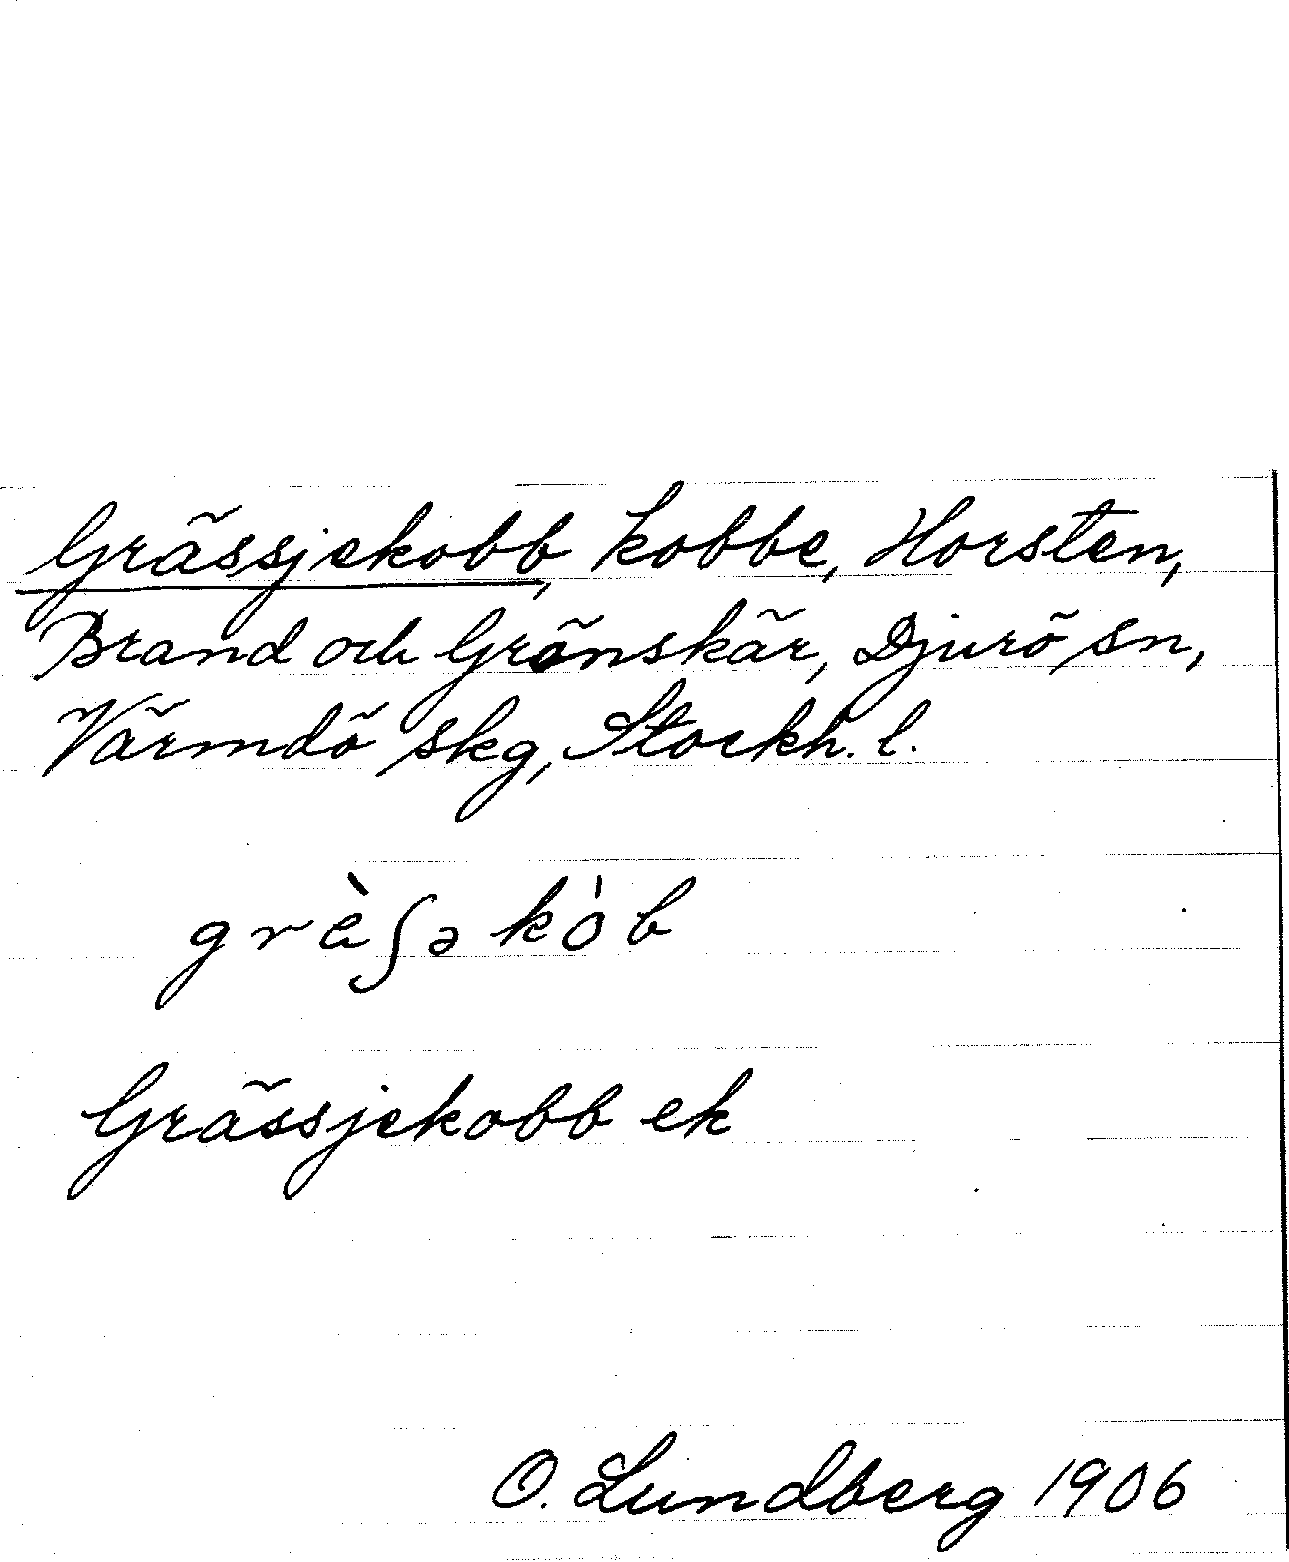 Grässjekobb, kobbe, Horsten,
Brand och Grönskär, Djurö sn,
Värmdö skg, Stockh. l.
grèʃə kòb
Grässjekobb ek
O. Lundberg 1906